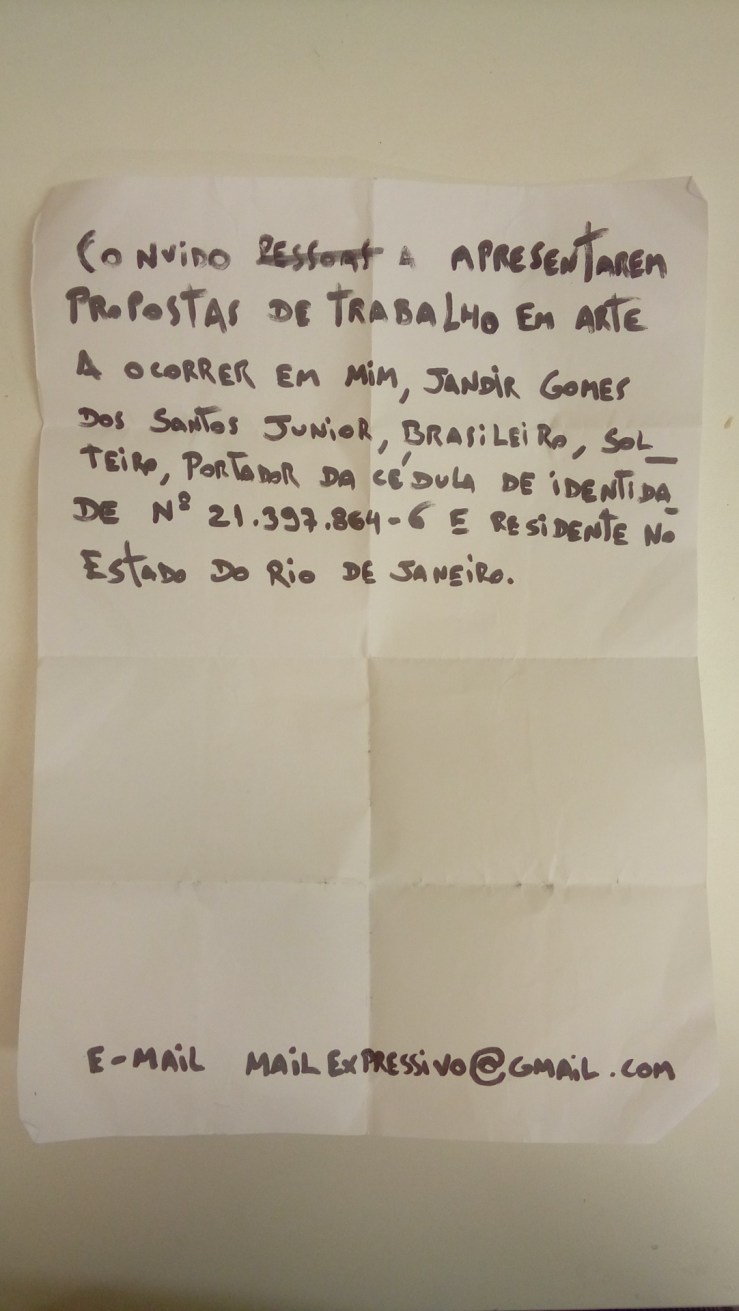 CONVIDO PESSOAS A APRESENTAREM
PROPOSTAS DE TRABALHO EM ARTE
A OCORRER EM MIM, JANDIR GOMES
DOS SANTOS JUNIOR, BRASILEIRO, SOL_
TEIRO, PORTADOR DA CÉDULA DE IDENTIDA_
DE Nº 21.397.864-6 E RESIDENTE NO
ESTADO DO RIO DE JANEIRO.
E-MAIL MAILEXPRESSIVO@GMAIL.COM